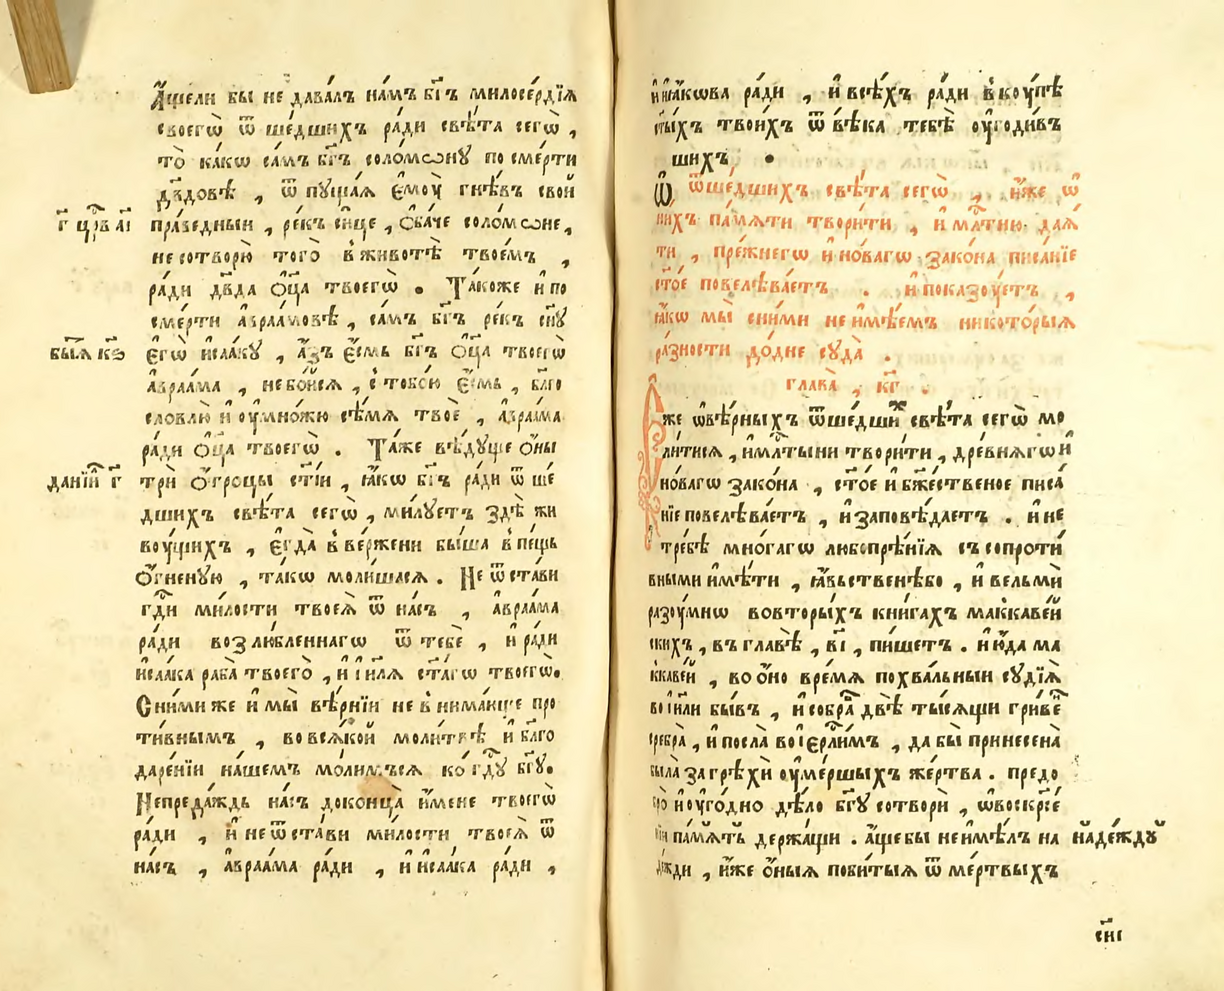 А҆́щели бы не дава́лъ на́мъ бг҃ъ милосе́рдїѧ
своегѡ̀ ѿ ше́дшихъ ра́ди свѣ́та сегѡ̀ ,
то̀ ка́кѡ са́мъ бг҃ъ соло́мѡнꙋ по сме́рти
дв҃довѣ , ѿ пꙋща́ѧ є҆моу̀ гнѣ́въ свой
г҃ цр҃в а҃і пра́ведныи , ре́къ си́це , ѻ҆ба́че соло́мѡне ,
не сотворю̀ того̀ в животѣ̀ твое́мъ ,
ра́ди дв҃да ѻ҆ц҃а твоегѡ̀ . Та́коже и҆ по
сме́рти а҆враа́мовѣ , са́мъ бг҃ъ ре́къ сн҃ꙋ
бы҃їѧ к҃ѕ є҆гѡ̀ и҆саа́кꙋ , а҆́зъ є҆́смь бг҃ъ ѻ҆ц҃а твоегѡ̀
а҆враа́ма , не бо́йсѧ , с тобо́ю є҆́смь , бл҃го
словлю̀ и҆ оу҆мно́жю сѣ́мѧ твоѐ , а҆враа́ма
ра́ди ѻ҆ц҃а твоегѡ̀ . Та́же вѣ́дꙋще ѻ҆́ны
данїи́л г҃ трѝ ѻ҆́троцы ст҃і́и , ꙗ҆́кѡ бг҃ъ ра́ди ѿ ше́
дшихъ свѣ́та сегѡ̀ , ми́лꙋетъ здѣ̀ жи
воу́щихъ , є҆гда̀ в ве́ржени бы́ша в пе́щь
ѻ҆́гненꙋю , та́кѡ моли́шасѧ . Не ѿ ста́ви
гд҃и ми́лости твоеѧ̀ ѿ на́съ , а҆враа́ма
ра́ди возлю́бленнагѡ ѿ тебѐ , и҆ ра́ди
и҆саа́ка раба̀ твоего̀ , и҆ і҆и҃лѧ ст҃а́гѡ твоегѡ̀ .
С ни́ми же и҆ мы̀ вѣ́рнїи не в нима́юще про
ти́внымъ , во всѧ́кой моли́твѣ и҆ бл҃го
даре́нїи на́шемъ мо́лимъсѧ ко́ гдⷭ҇ꙋ бг҃ꙋ .
Не преда́ждь на́съ до конца̀ и҆́мене твоегѡ̀
ра́ди , и҆ не ѿста́ви ми́лости твоеѧ̀ ѿ
на́съ , а҆враа́ма ра́ди , и҆ и҆саа́ка ра́ди ,
и҆ и҆ꙗ҆́кѡва ра́ди , и҆ всѣ́хъ ра́ди вкоу́пѣ
ст҃ы́хъ твои́хъ ѿ вѣ́ка тебѣ̀ оу҆годи́в
шихъ .
Ѡ҆ ѿше́дшихъ свѣ́та сегѡ̀ , и҆́же ѡ҆
ни́хъ па́мѧти твори́ти , и҆ мл҃тню даѧ́
ти , пре́жнегѡ и҆ но́вагѡ зако́на писа́нїе
ст҃о́е повелѣва́етъ . и҆ показоу́етъ ,
ꙗ҆́кѡ мы̀ с ни́ми не и҆мѣ́ем никото́рыѧ
ра́зности до́ дне сꙋда̀ .
глава̀ , к҃г .
Єже ѡ҆ вѣ́рныхъ ѿше́дших свѣ́та сегѡ̀ мо
ли́тисѧ , и҆ мл҃тыни твори́ти , дре́внѧгѡ и҆
но́вагѡ зако́на , ст҃о́е и҆ бж҃е́ственое писа́
нїе повелѣва́етъ , и҆ заповѣ́даетъ . и҆ не
тре́бѣ мно́гагѡ любопрѣ́нїѧ съ сопроти́
вными и҆мѣ́ти , ꙗ҆́вьственѣ бо , и҆ вельмѝ
разоу́мнѡ во вторы́хъ кни́гах маккаве́й
скихъ , въ главѣ̀ , в҃і , пи́шетъ . и҆ ю҆́да ма
ккаве́й , во ѻ҆но̀ вре́мѧ похва́льныи сꙋдїѧ̀
во і҆и҃ли бы́въ , и҆ собра̀ двѣ̀ ты́сѧщи гриве́
сребра̀ , и҆ посла̀ во і҆ер҃ли́мъ , да бы̀ принесена̀
была̀ за грѣхѝ оу҆ме́ршыхъ же́ртва . предо
и҆ оу҆го́дно дѣ́ло бг҃ꙋ сотворѝ , ѡ҆ воскр҃се́
нїи па́мѧть держа́щи . а҆́ще бы не и҆мѣ́лъ на наде́ждꙋ
де́жди , и҆́же ѻ҆́ныѧ поби́тыѧ ѿ ме́ртвыхъ
сн҃і